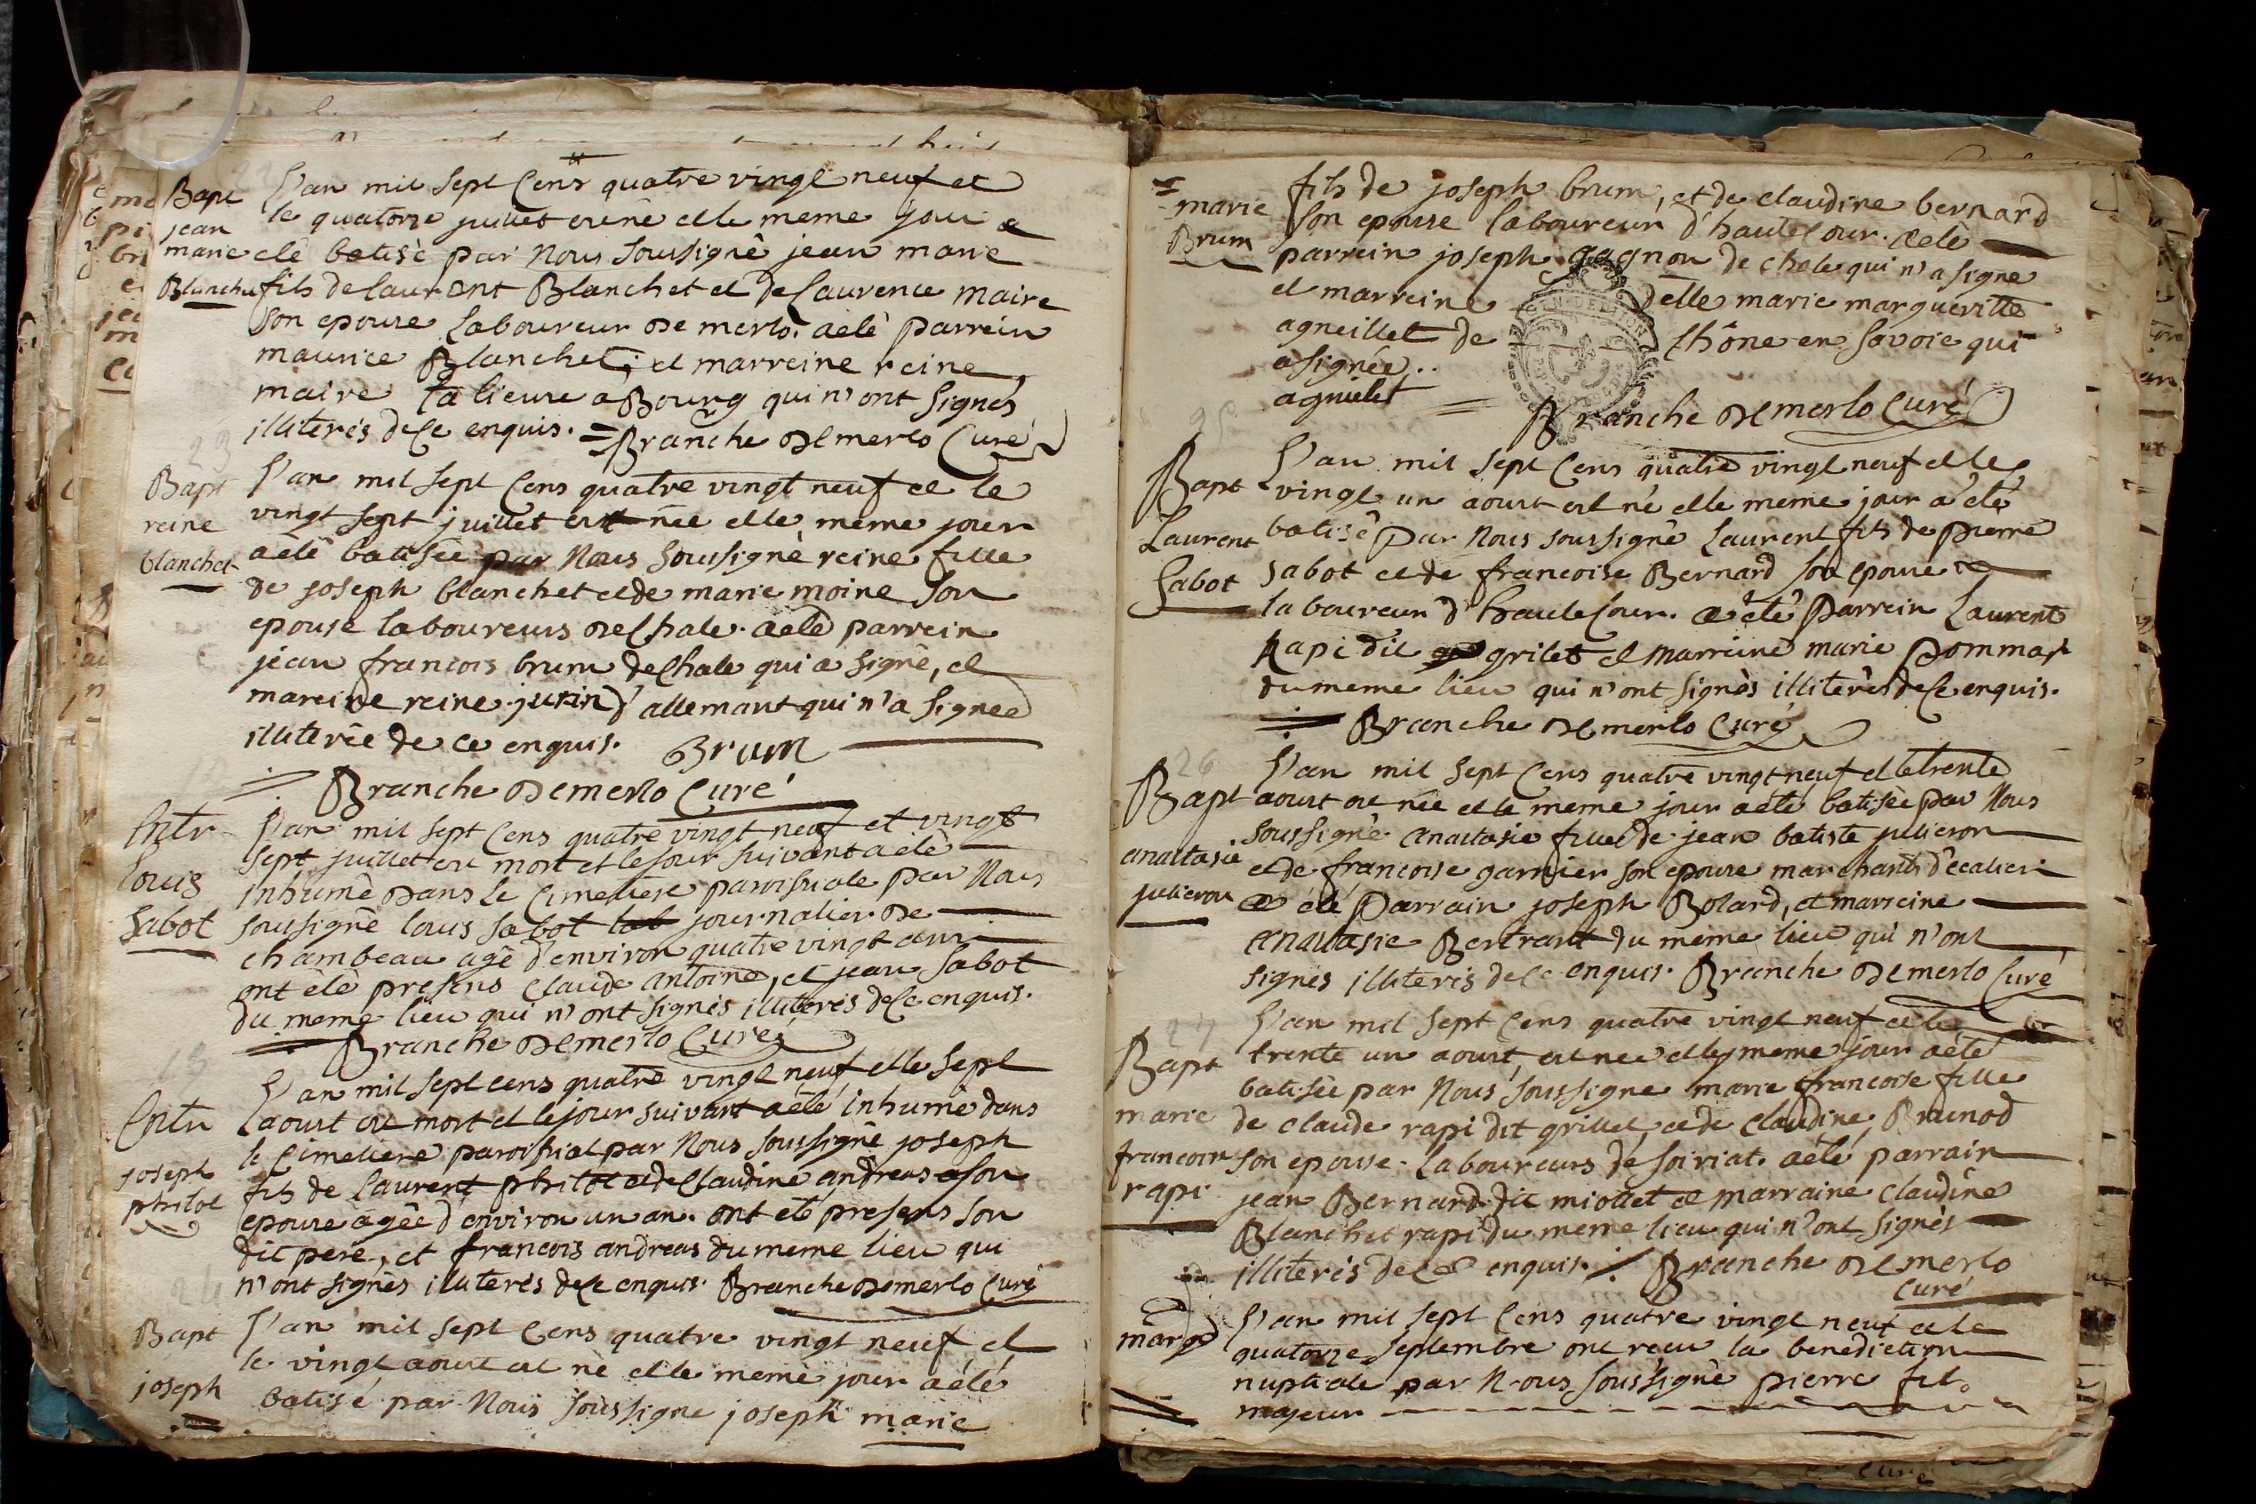 Bapt
jean
marie
Blanchet
L'an mil sept Cens quatre vingt neuf et
le quatorze juillet est né et le meme jour a
eté batisé par Nous soussigné jean marie
fils de laurent Blanchet et de laurence maire
son epouse laboureur de merlo. a eté parrein
maurice Blanchet, et marreine reine
maire talieure a Bourg qui n'ont Signés
illiterés de Ce enquis. = Branche De merlo Curé
23
Bapt
reine
blanchet
L'an mil sept Cens quatre vingt neuf et le
vingt sept juillet est née et le meme jour
a eté batisée par Nous soussigné reine fille
de joseph blanchet et de marie moine son
epouse laboureurs de Chale. a eté parrein
jean francois brum de Chale qui a signé, et
mareine reine jurin d'allemant qui n'a signee
illiterée de ce enquis. Brum
Branche De merlo Curé
Entr
louis
Sabot
L'an mil sept Cens quatre vingt neuf et vingt
sept juillet est mort et le jour suivant a eté
inhumé dans le Cimetiere paroissiale par Nous
soussigné louis sabot lab journalier de
chambeau agé d'environ quatre vingt ans
ont eté presens Claude antoine, et jean Sabot
du meme lieu qui n'ont signés illiterés de Ce enquis.
Branche De merlo Curé
Entr
joseph
philot
L'an mil sept cens quatre vingt neuf et le sept
aoust est mort et le jour suivant a eté inhumé dans
le Cimetiere paroissial par Nous soussigné joseph
fils de laurent philot et de Claudine andreas a son
epouse agée d'environ un an. ont eté presens son
dit pere, et francois andreas du meme lieu qui
n'ont signés illiterés de Ce enquis. Branche De merlo Curé
24
Bapt
joseph
L'an mil sept Cens quatre vingt neuf et
le vingt aoust est né et le meme jour a eté
batisé par Nous soussigné joseph marie
marie
Brum
fils de joseph brum, et de claudine bernard
son epouse laboureur d'haute Cour. a eté
parrein joseph gagnon de chale qui n'a signe
et marreine delle marie marguéritte
agneillet de thône en Savoie qui
a signée..
agnielet
Branche De merlo Curé
25
Bapt
Laurent
Sabot
L'an mil sept Cens quatre vingt neuf et le
vingt un aoust est né et le meme jour a eté
batisé Par Nous soussigné Laurent fils de pierre
sabot et de francoise Bernard son epouse
laboureur d'haute Cour. a eté Parrein Laurent
Rapi dit grilet et marreine marie Pommat
du meme lieu qui n'ont signés illiterés de Ce enquis.
Branche De merlo Curé
26
Bapt
anastasie
julieron
L'an mil sept Cens quatre vingt neuf et le trente
aoust est née et le meme jour a eté batisée par Nous
soussigné anastasie fille de jean batiste julieron
et de francoise garnier son epouse marchands d'ecalieri
a eté Parrain joseph Bolard, et marreine
anastasie Bertrant du meme lieu qui n'ont
signés illiterés de Ce enquis. Branche De merlo Curé
27
Bapt
marie
francoise
rapi
L'an mil sept Cens quatre vingt neuf et le
trente un aoust, est nee et le meme jour a eté
batisée par Nous soussigne marie francoise fille
de claude rapi dit grillet, et de Claudine Brunod
son epouse. Laboureurs de soiriat. a eté parrain
jean Bernard dit miollet et marraine claudine
Blanchet rapi du meme lieu qui n'ont signés
illiterés de Ce enquis. Branche De merlo
Curé
marg
L'an mil sept Cens quatre vingt neuf et le
quatorze septembre ont recu la benediction
nuptiale par Nous soussigné pierre fils
majeur